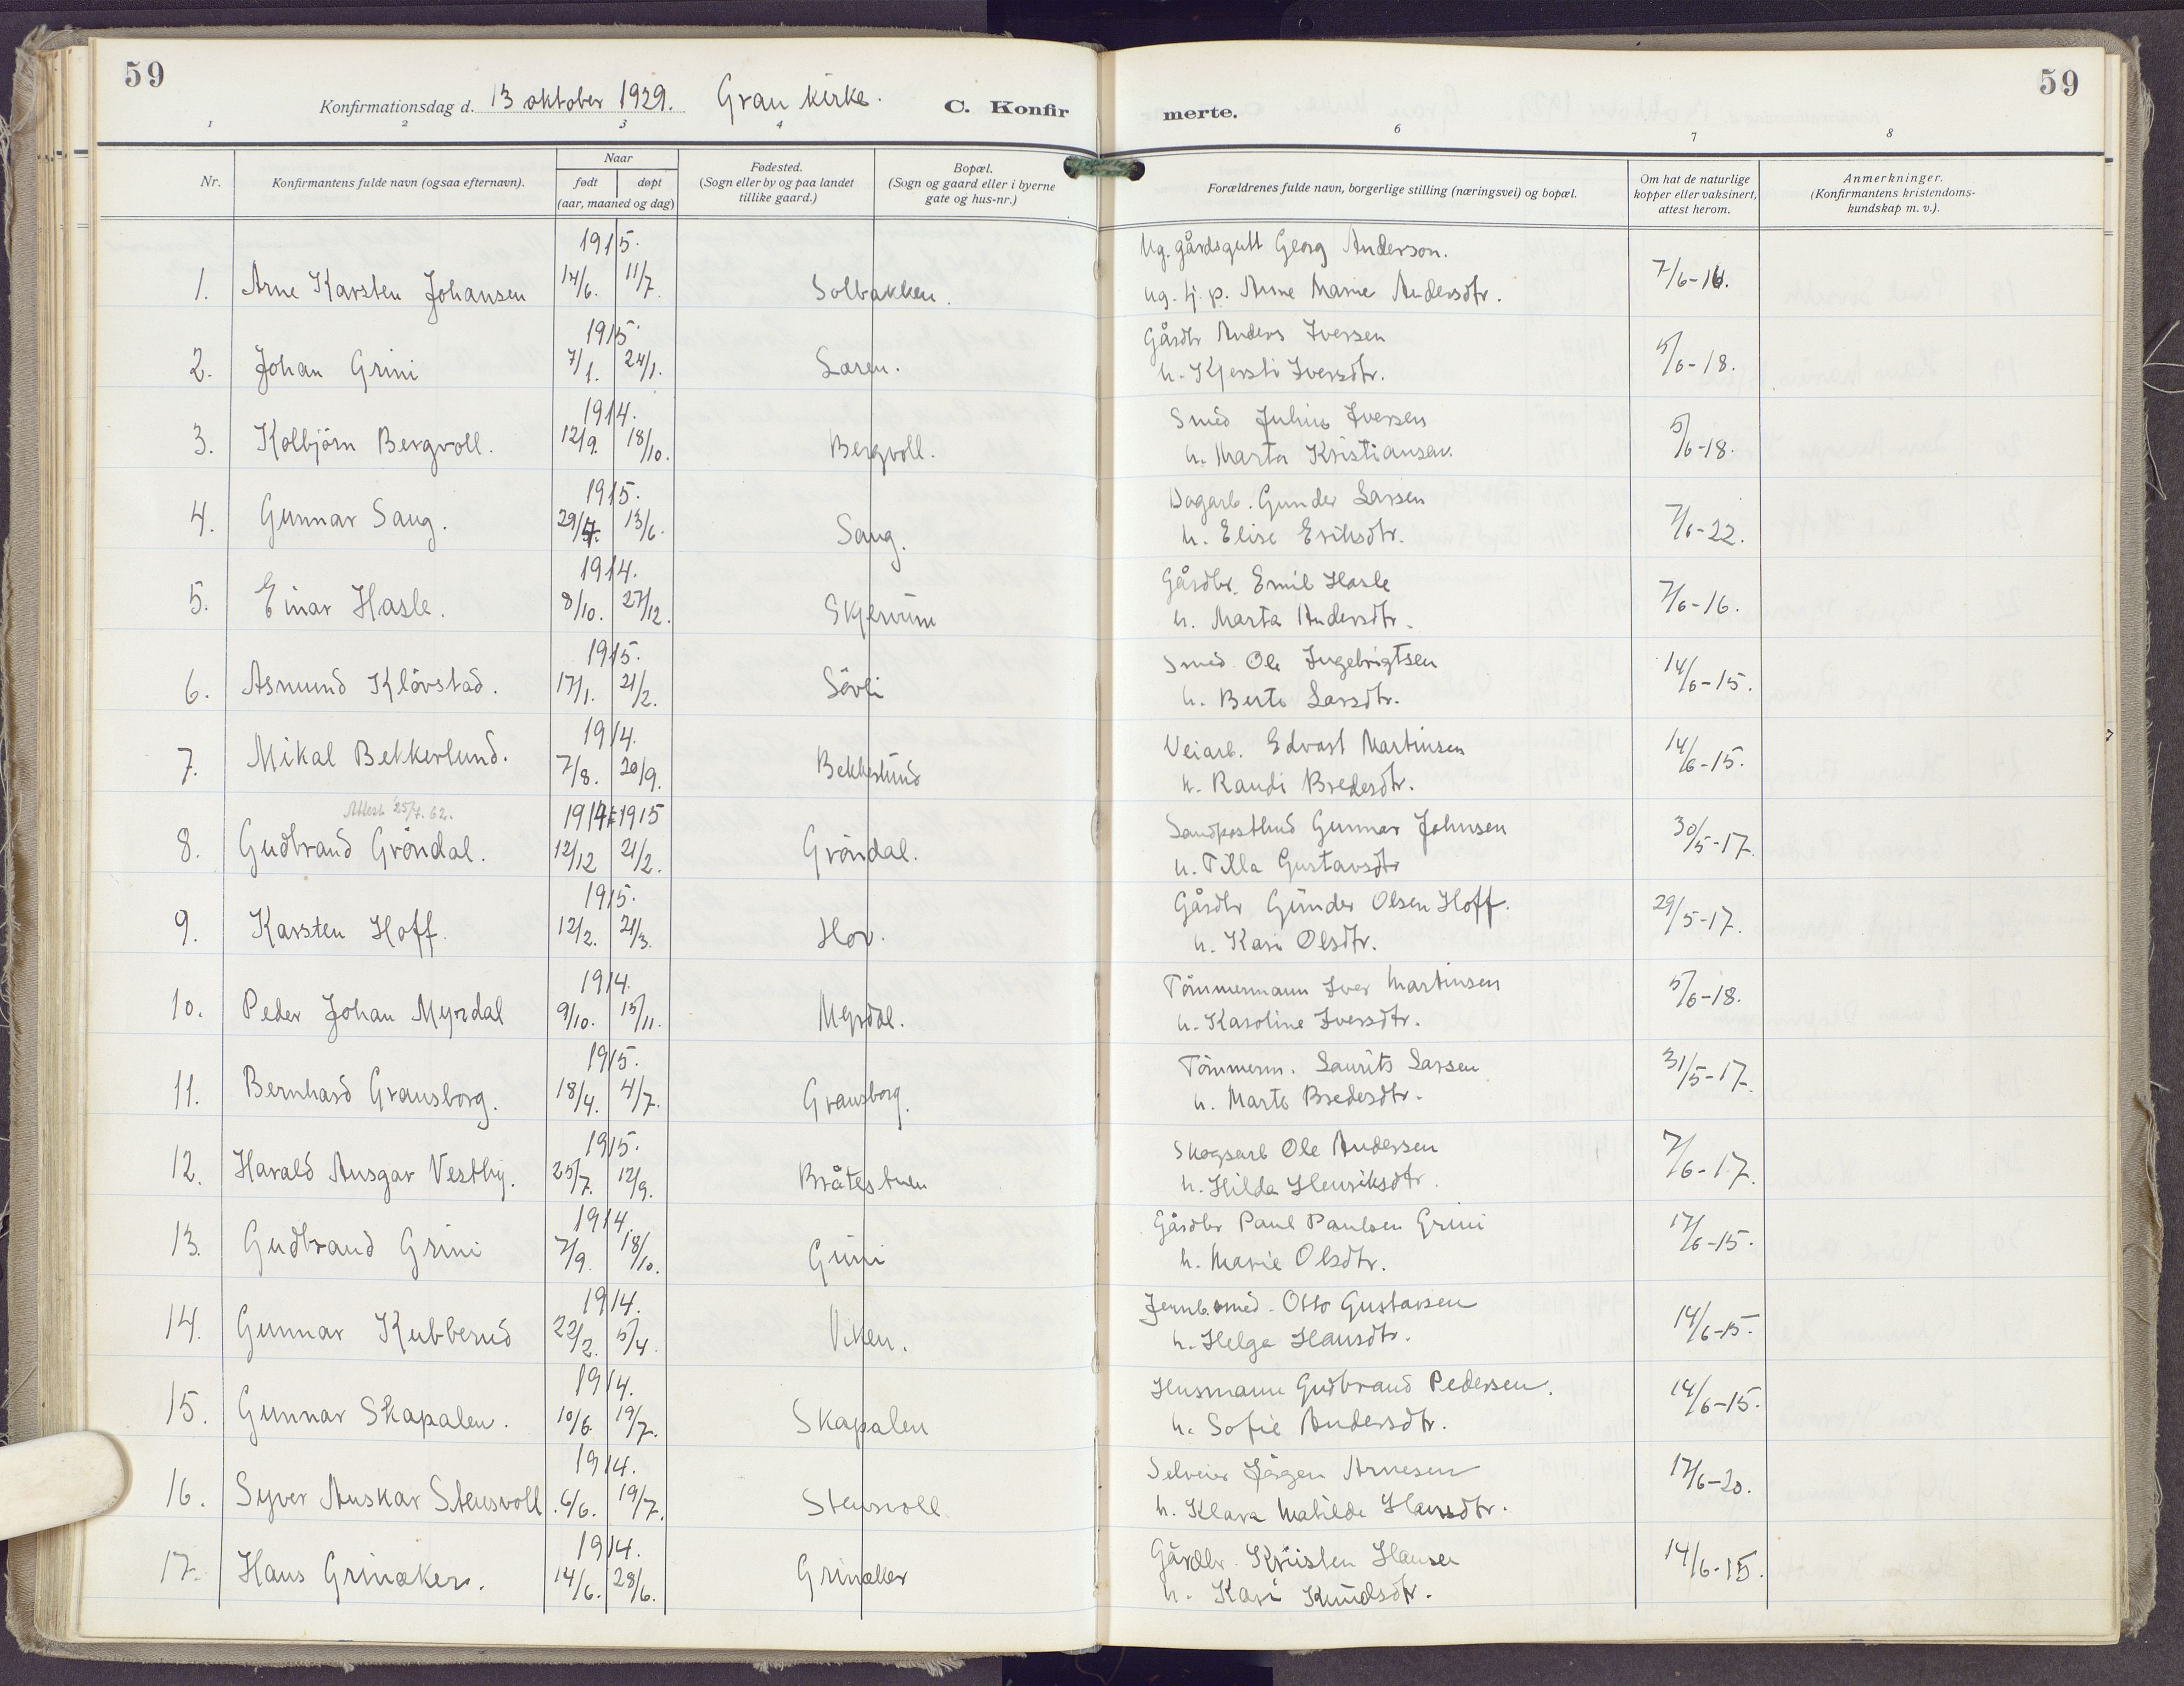 59
Konfirmationsdag d. 13 oktober 1929. Gran kirke. C. Konfir
1 2 3 4
Nr.
Konfirmantens fulde navn (ogsaa efternavn).
Naar
født døpt
(aar, maaned og dag)
Fødested.
(Sogn eller by og paa landet
tillike gaard.)
Bopæl.
(Sogn og gaard eller i byerne
gate og hus-nr.)
1915.
1. Arne Karsten Johansen 14/6. 11/7. Solbakken.
1915.
2. Johan Grini 7/1. 24/1. Laren.
1914.
3. Kolbjörn Bergvoll. 12/9. 18/10. Bergvoll.
1915.
4. Gunnar Saug. 29/4. 13/6. Saug.
1914.
5. Einar Hasle. 8/10. 27/12. Skjervum
1915.
6. Asmund Klövstad. 17/1. 21/2. Sövli
1914.
7. Mikal Bekkerlund. 7/8. 20/9. Bekkelund
Attest 25/4.62.
1914 1915
8. Gudbrand Gröndal. 12/12 21/2. Gröndal.
1915.
9. Karsten Hoff. 12/2. 21/3. Hov.
1914.
10. Peder Johan Myrdal 9/10. 15/11. Myrdal.
1915.
11. Bernhard Gransborg. 18/4. 4/7. Gransborg.
1915.
12. Harald Ansgar Vestby. 25/7. 12/9. Bråtestuen
1914.
13. Gudbrand Grini 7/9. 18/10. Grini
1914.
14. Gunnar Kubberud 22/2. 5/4. Viken.
1914.
15. Gunnar Skapalen. 10/6 19/7. Skapalen
1914.
16. Syver Anskar Stensvoll 6/6. 19/7. Stensvoll
1914.
17. Hans Grinaker. 14/6. 28/6. Grinaker
59
merte.
6 7 8
Forældrenes fulde navn, borgerlige stilling (næringsvei) og bopæl.
Om hat de naturlige
kopper eller vaksinert,
attest herom.
Anmerkninger.
(Konfirmantens kristendoms-
kundskap m. v.).
Ug. gårdsgutt Georg Anderson.
ug. tj. p. Anne Marie Andersdtr. 7/6-16.
Gårdbr Anders Iversen
h. Kjersti Iversdtr. 5/6-18.
Smed Julius Iversen
h. Marta Kristiansdtr. 5/6-18.
Dagarb. Gunder Larsen
h. Elise Eriksdtr. 7/6-22.
Gårdbr. Emil Hasle
h. Marta Andersdtr. 7/6-16.
Smed Ole Ingebrigtsen
h. Berte Larsdtr. 14/6-15.
Veiarb. Edvart Martinsen
h. Randi Bredesdtr. 14/6-15.
Landpostbud Gunnar Johnsen
h. Tilla Gustavsdtr 30/5-17.
Gårdbr Gunder Olsen Hoff.
h. Kari Olsdtr. 29/5-17.
Tömmermann Iver Martinsen
h. Karoline Iversdtr. 5/6-18.
Tömmerm. Laurits Larsen
h. Marte Bredesdtr. 31/5-17.
Skogsarb Ole Andersen
h. Hilda Henriksdtr. 7/6-17.
Gårdbr Paul Paulsen Grini
h. Marie Olsdtr. 17/6-15.
Jernb.smed. Otto Gustavsen
h. Helga Hansdtr. 14/6-15.
Husmann Gudbrand Pedersen.
h. Sofie Andersdtr. 14/6-15.
Selveier Jörgen Arnesen
h. Klara Matilde Hansdtr. 17/6-20.
Gårdbr. Kristen Hansen
h. Kari Knudsdtr. 14/6-15.